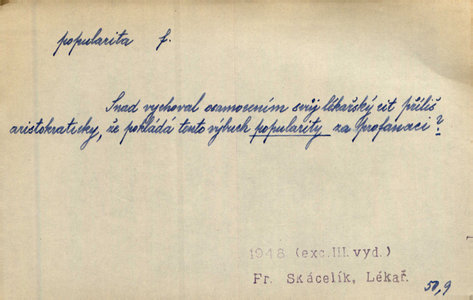 popularita f.
Snad vychoval osamocením svůj lékařský cit příliš
aristokraticky, že pokládá tento výbuch popularity za profanaci?
1948 (exc.III.vyd.)
Fr. Skácelík, Lékař.
50,9